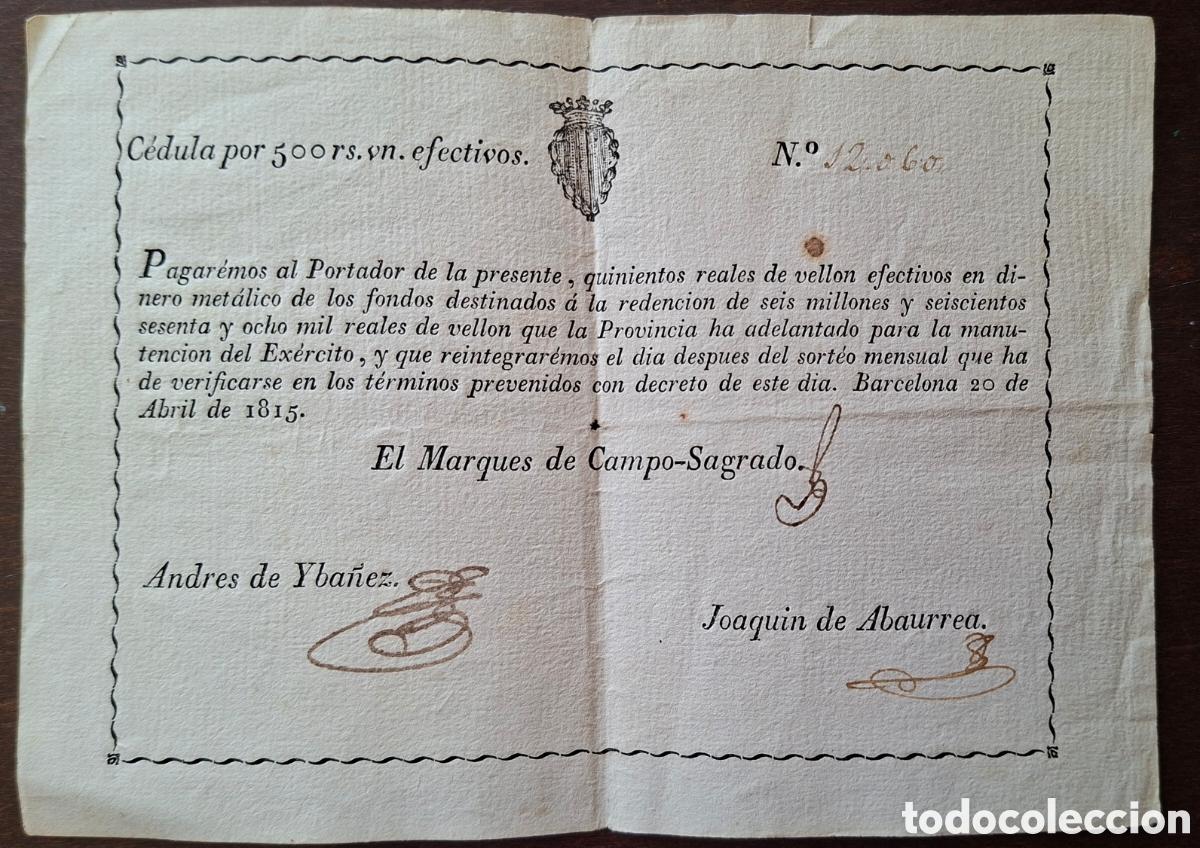 Cédula por 500 rs. vn. efectivos.
N.º 12.060.
Pagarémos al Portador de la presente, quinientos reales de vellon efectivos en di-
nero metálico de los fondos destinados á la redencion de seis millones y seiscientos
sesenta y ocho mil reales de vellon que la Provincia ha adelantado para la manu-
tencion del Exército, y que reintegrarémos el dia despues del sortéo mensual que ha
de verificarse en los términos prevenidos con decreto de este dia. Barcelona 20 de
Abril de 1815.
El Marques de Campo-Sagrado.
Andres de Ybañez.
Joaquin de Abaurrea.
todocoleccion